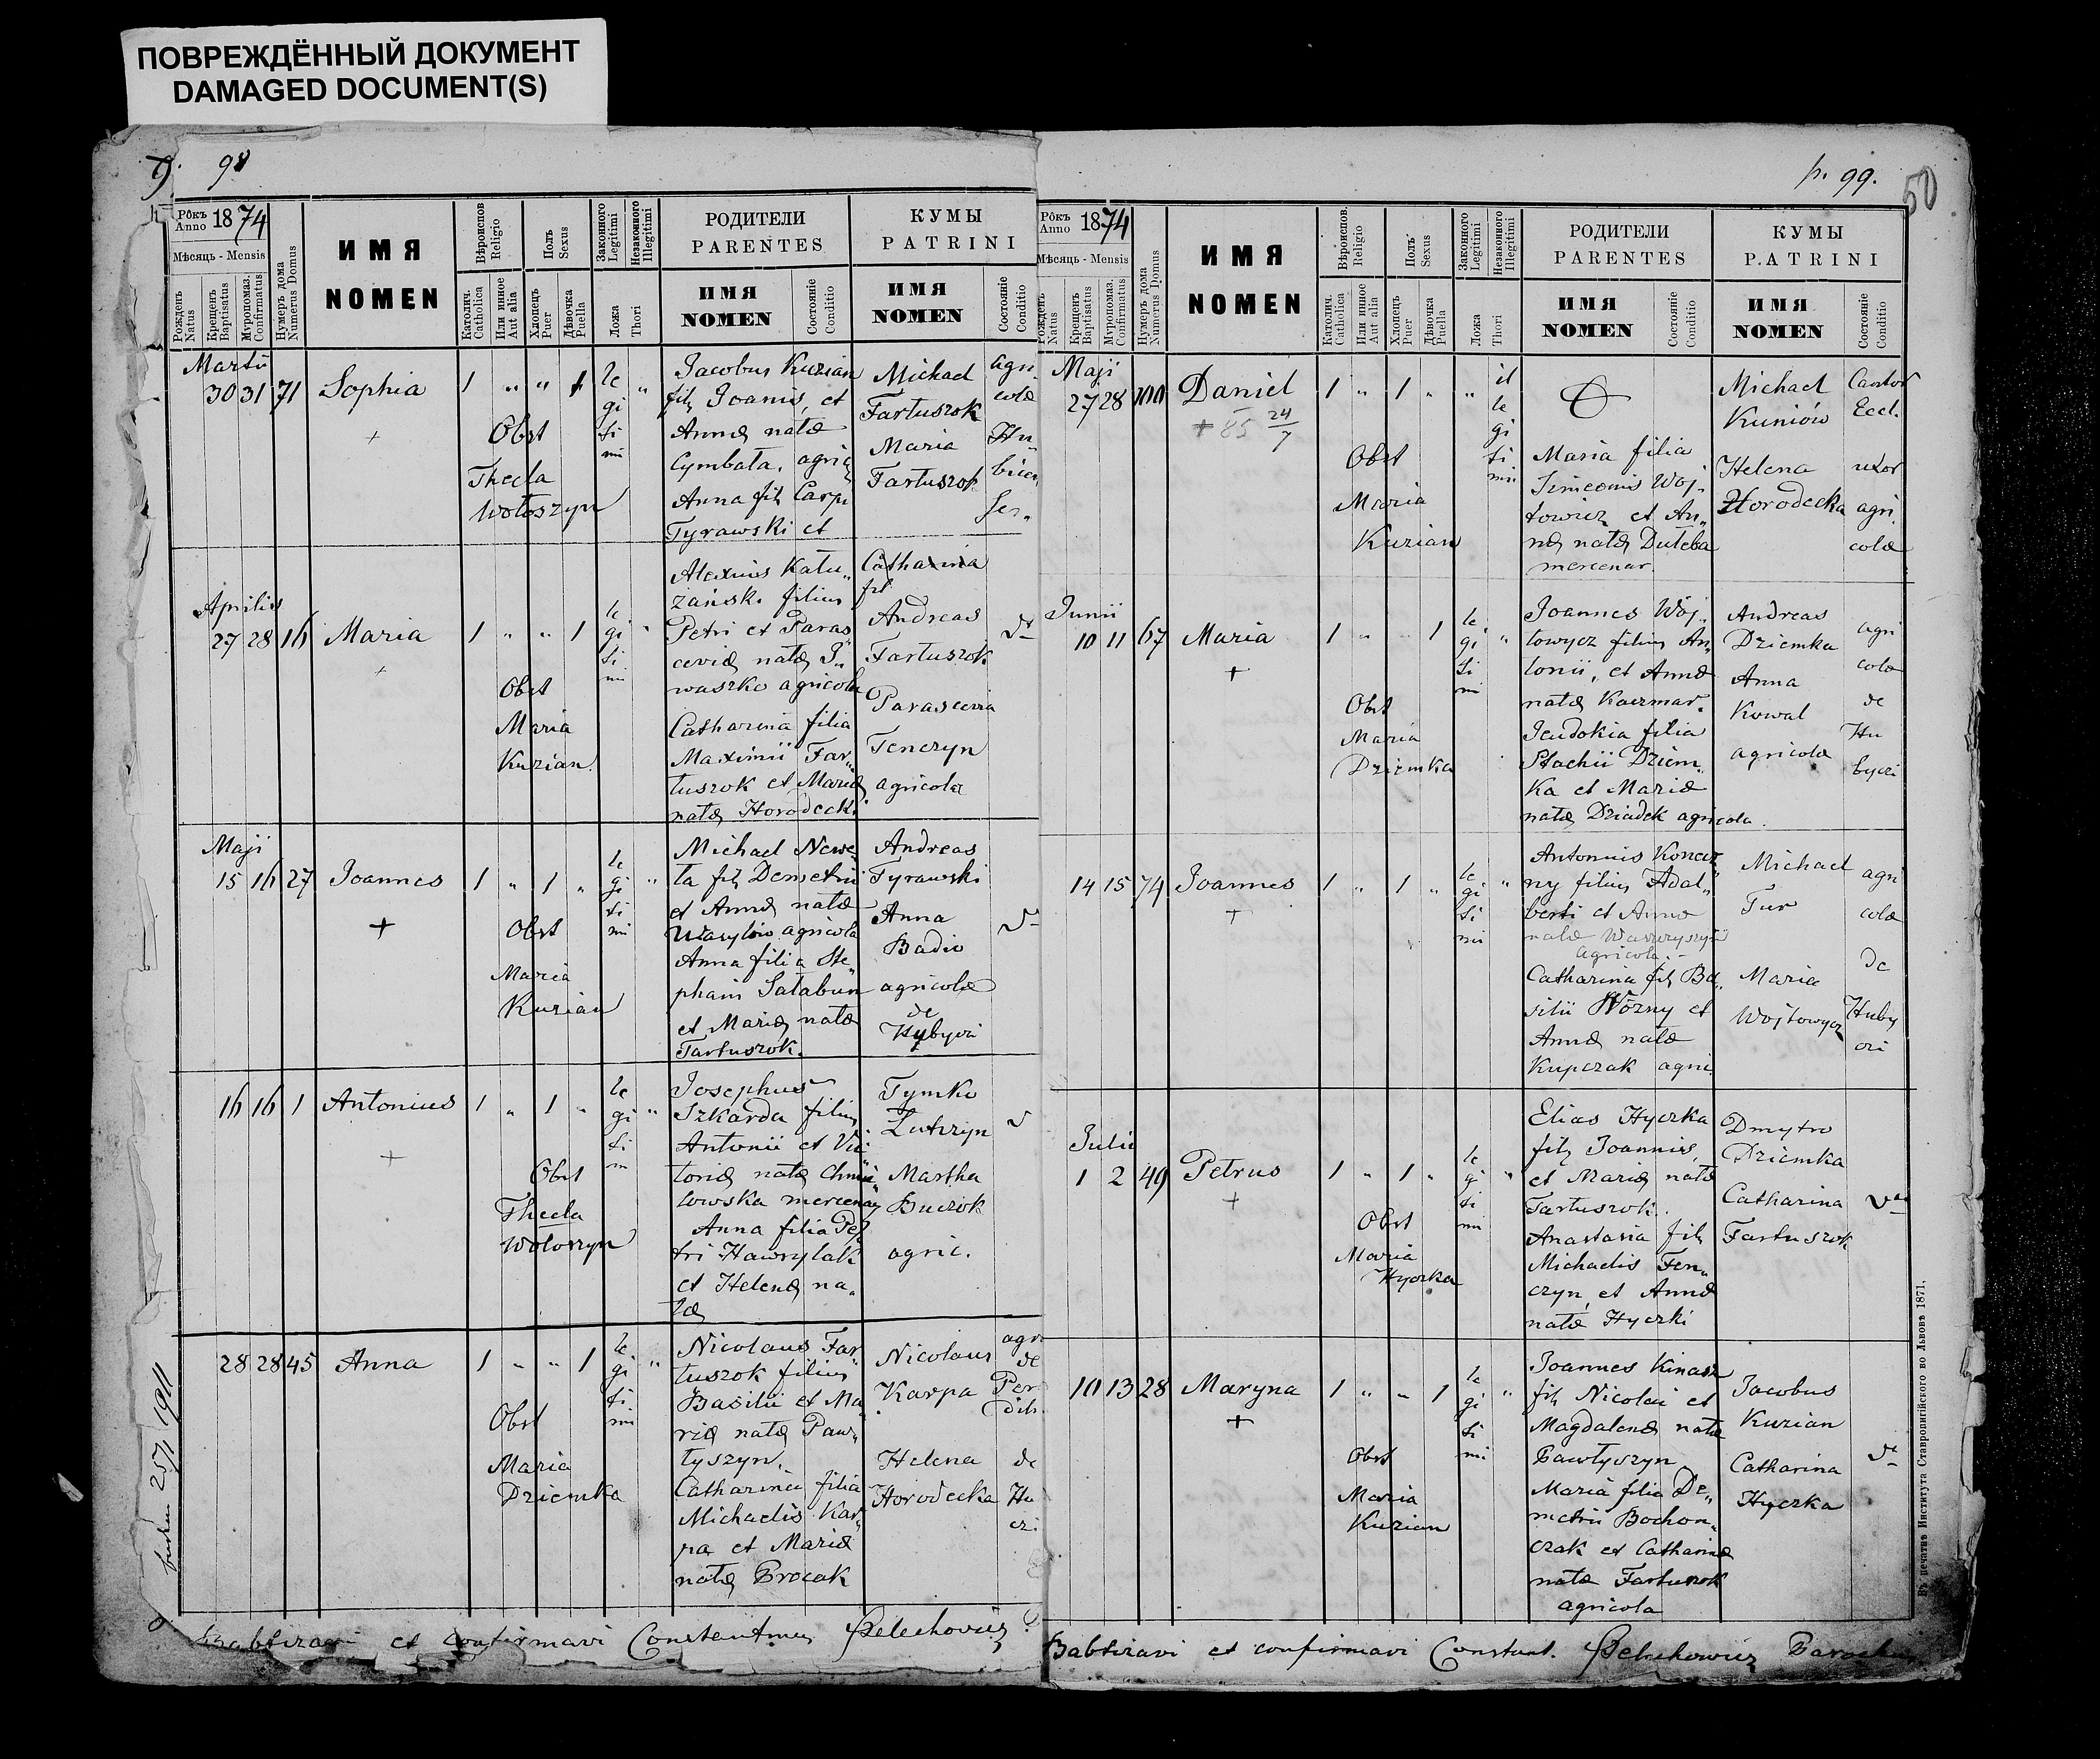 ПОВРЕЖДЁННЫЙ ДОКУМЕНТ
DAMAGED DOCUMENT(S)
98
Рôкъ Anno 1874
Мѣсяць - Mensis
Рожденъ Natus
Крещенъ Baptisatus
Мѵропомаз. Confirmatus
Нумеръ дома Numerus Domus
ИМЯ
NOMEN
Вѣроиспов Religio
Католич. Catholica
Или инное Aut alia
Полъ Sexus
Хлопець Puer
Дѣвочка Puella
Законного Legitimi
Незаконного Illegitimi
Ложа Thori
РОДИТЕЛИ
PARENTES
ИМЯ
NOMEN
Состоянiе Conditio
КУМЫ
PATRINI
ИМЯ
NOMEN
Состоянiе Conditio
Martii
30 31 71 Sophia 1 " " 1
le
gi
ti
mi
"
+
Obst
Thecla
Wołoszyn
Jacobus Kuzian
fil. Joannis, et
Annæ natæ
Cymbała, agric.
Anna fil. Carpi
Tyrawski et
Michael
Fartuszok
Maria
Fartuszok
agri
colæ
Aprilis
27 28 16 Maria 1 " " 1
le
gi
ti
mi
"
+
Obst
Maria
Kuzian
Alexius Kału„
żański filius
Petri et Paras
ceviæ natæ I„
waszko agricola
Catharina filia
Maximii Far„
tuszok et Mariæ
natæ Horodecki
Catharina
fil
Andreas
Fartuszok
Parascevia
Fenczyn
agricolæ
Maji
15 16 27 Joannes 1 " 1 "
le
gi
ti
mi
"
+
Obst
Maria
Kuzian
Michael Newe
ta fil. Demetrii
et Annæ natæ
Wasyliw agricola
Anna filia Ste„
phani Sałabun
et Mariæ natæ
Fartuszok.
Andreas
Tyrawski
Anna
Badio
agricolæ
de
16 16 1 Antonius 1 " 1 "
le
gi
ti
m
"
+
Obst
Thecla
Wołoszyn
Josephus
Szkarda filius
Antonii et Vic
toriæ natæ Chmie„
lowska mercenary
Anna filia Pe„
tri Hawrylak
et Helenæ na„
tæ
Tymko
Martha
Buczok
agric.
28 28 45 Anna 1 " " 1
le
gi
ti
mi
"
Obst
Maria
Dziemka
Nicolaus Far
tuszok filius
Basilii et Ma
riæ natæ Paw„
łyszyn.
Catharina filia
Michaelis Kar„
pa et Mariæ
natæ Procak
Nicolaus
Karpa
Helena
Horodecka
agr
de
de
Hu
1911
et confirmavi Constantinus Pelechowicz
p. 99.
50
Рôкъ Anno 1874
Мѣсяць - Mensis
Рожденъ Natus
Крещенъ Baptisatus
Мѵропомаз. Confirmatus
Нумеръ дома Numerus Domus
ИМЯ
NOMEN
Вѣроиспов. Religio
Католич. Catholica
Или инное Aut alia
Полъ Sexus
Хлопець Puer
Дѣвочка Puella
Законного Legitimi
Незаконного Illegitimi
Ложа Thori
РОДИТЕЛИ
PARENTES
ИМЯ
NOMEN
Состоянiе Conditio
КУМЫ
PATRINI
ИМЯ
NOMEN
Состоянiе Conditio
Maji
27 28 100 Daniel 1 " 1 " "
il
le
gi
ti
mi
+ 85 24/7
Obst
Maria
Kuzian
Maria filia
Simeonis Woj„
towicz et An„
næ natæ Duleba
mercenar.
Michael
Kuniów
Helena
Horodecka
Cantor
Eccl.
uxor
agri.
colæ
Junii
10 11 67 Maria 1 " " 1
le
gi
ti
mi
"
+
Obst
Maria
Dziemka
Joannes Woj„
towycz filius An„
tonii, et Annæ
natæ Kaczmar.
Jeudokia filia
Stachii Dziem„
ka et Mariæ
natæ Dziadek agricola.
Andreas
Dziemka
Anna
Kowal
agricolæ
agri
colæ
de
Hu
byczi
14 15 74 Joannes 1 " 1 "
le
gi
ti
mi
"
+
Antonius Konecz
ny filius Adal„
berti et Annæ
natæ Wawryszyn
agricola. –
Catharina fil. Ba„
silii Wozny et
Annæ natæ
Kupczak agric.
Michael
Tur
Maria
Wojtowycz
agri
colæ
de
Huby
czi
Julii
1 2 49 Petrus 1 " 1 "
le
gi
ti
mi
"
+
Obst
Maria
Hyczka
Elias Hyczka
fil. Joannis,
et Mariæ natæ
Fartuszok.
Anastasia fil.
Michaelis Fen„
czyn, et Annæ
natæ Hyczki
Dmytro
Dziemka
Catharina
Fartuszok
10 13 28 Maryna 1 " " 1
le
gi
ti
mi
"
+
Obst
Maria
Kuzian
Joannes Kinasz
fil. Nicolai et
Magdalenæ natæ
Pawłyszyn
Maria filia De„
metrii Bochon„
czak et Catharinæ
natæ Fartuszok
agricola
Jacobus
Kuzian
Catharina
Hyczka
Babtizavi et confirmavi Constant. Pelechowicz Parochus
Въ печатнѣ Института Ставропигійского во Львовѣ 1871.